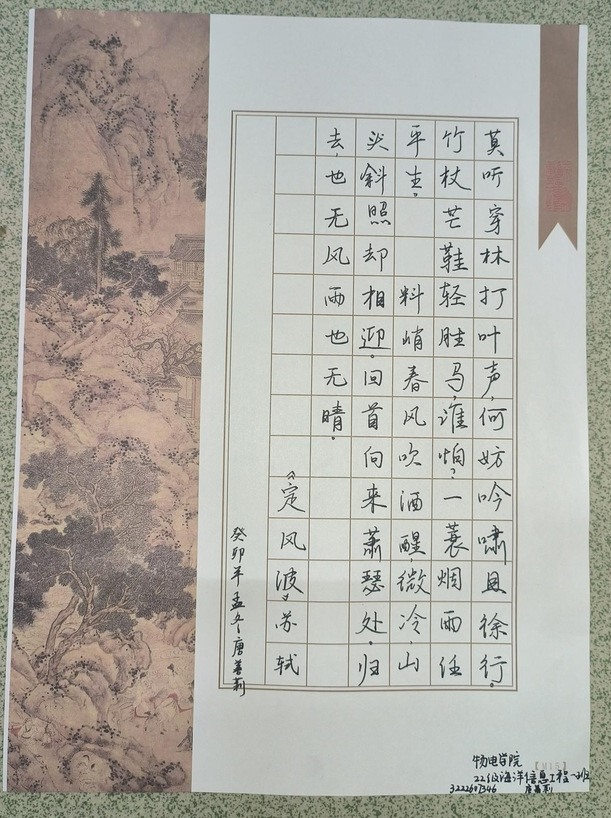 莫听穿林打叶声,何妨吟啸且徐行。
竹杖芒鞋轻胜马,谁怕?一蓑烟雨任
平生。料峭春风吹酒醒,微冷,山
头斜照却相迎。回首向来萧瑟处,归
去,也无风雨也无晴。
《定风波》苏轼
癸卯年孟冬唐善莉
物电学院
22级海洋信息工程一班
唐善莉